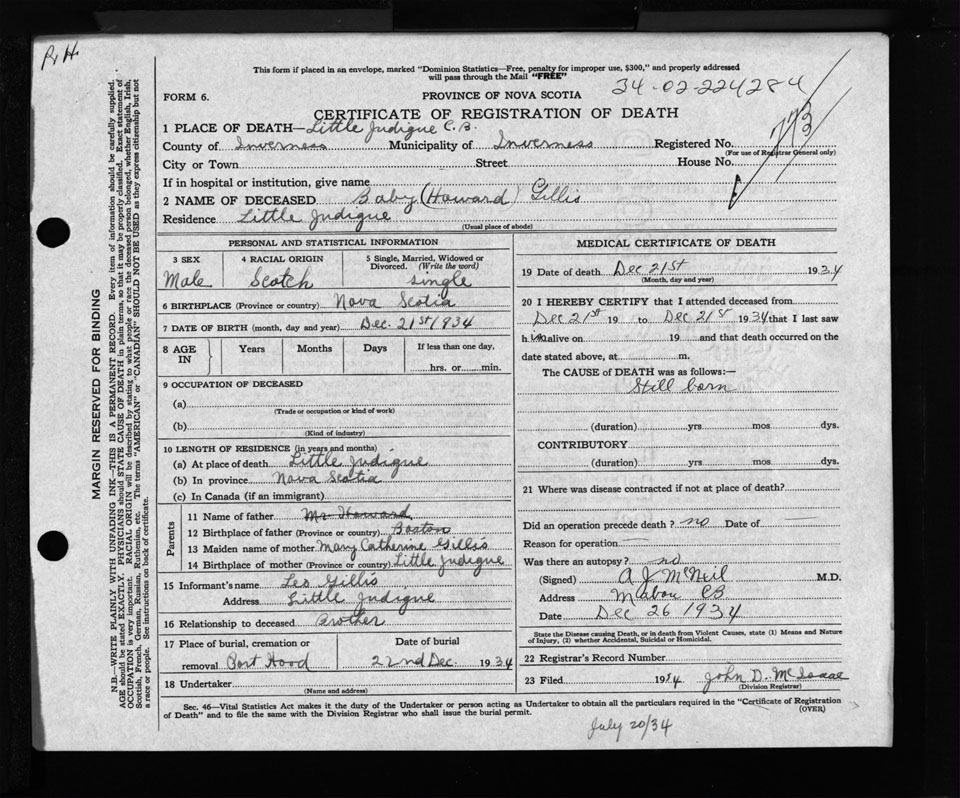 R H
This form if placed in an envelope, marked "Dominion Statistics—Free, penalty for improper use, $300," and properly addressed
will pass through the Mail "FREE"
FORM 6.
PROVINCE OF NOVA SCOTIA
34-02-224284
CERTIFICATE OF REGISTRATION OF DEATH
773
1 PLACE OF DEATH—Little Judique C.B.
County of Inverness Municipality of Inverness Registered No.
(For use of Registrar General only)
City or Town Street House No.
If in hospital or institution, give name
2 NAME OF DECEASED Baby (Howard) Gillis
Residence Little Judique
(Usual place of abode)
PERSONAL AND STATISTICAL INFORMATION
3 SEX 4 RACIAL ORIGIN 5 Single, Married, Widowed or
Divorced. (Write the word)
Male Scotch single
6 BIRTHPLACE (Province or country) Nova Scotia
7 DATE OF BIRTH (month, day and year) Dec. 21st/1934
8 AGE IN Years Months Days If less than one day,
hrs. or min.
9 OCCUPATION OF DECEASED
(a)
(Trade or occupation or kind of work)
(b)
(Kind of industry)
10 LENGTH OF RESIDENCE (in years and months)
(a) At place of death Little Judique
(b) In province Nova Scotia
(c) In Canada (if an immigrant)
Parents
11 Name of father Mr Howard
12 Birthplace of father (Province or country) Boston
13 Maiden name of mother Mary Catherine Gillis
14 Birthplace of mother (Province or country) Little Judique
15 Informant's name Leo Gillis
Address Little Judique
16 Relationship to deceased Brother
17 Place of burial, cremation or Date of burial
removal Port Hood 22nd Dec. 1934
18 Undertaker
(Name and address)
MEDICAL CERTIFICATE OF DEATH
19 Date of death Dec 21st 1934
(Month, day and year)
20 I HEREBY CERTIFY that I attended deceased from
Dec 21st 19 to Dec 21st 1934 that I last saw
h im alive on 19 and that death occurred on the
date stated above, at m.
The CAUSE of DEATH was as follows:—
Still born
(duration) yrs mos dys.
CONTRIBUTORY
(duration) yrs. mos. dys.
21 Where was disease contracted if not at place of death?
Did an operation precede death? no Date of —
Reason for operation —
Was there an autopsy? no
(Signed) A J McNeil M.D.
Address Mabou CB
Date Dec 26 1934
State the Disease causing Death, or in death from Violent Causes, state (1) Means and Nature
of Injury, (2) whether Accidental, Suicidal or Homicidal.
22 Registrar's Record Number
23 Filed 1934 John D. McIsaac
(Division Registrar)
Sec. 46—Vital Statistics Act makes it the duty of the Undertaker or person acting as Undertaker to obtain all the particulars required in the "Certificate of Registration
of Death" and to file the same with the Division Registrar who shall issue the burial permit.
(OVER)
July 20/34
MARGIN RESERVED FOR BINDING
N.B.—WRITE PLAINLY WITH UNFADING INK—THIS IS A PERMANENT RECORD. Every item of information should be carefully supplied.
AGE should be stated EXACTLY. PHYSICIANS should STATE CAUSE OF DEATH in plain terms, so that it may be properly classified. Exact statement of
OCCUPATION is very important. RACIAL ORIGIN will be described by stating to what people or race the deceased person belonged, whether English, Irish,
Scottish, French, German, Russian, Ruthenian, etc. The terms "AMERICAN" or "CANADIAN" SHOULD NOT BE USED as they express citizenship but not
a race or people. See instructions on back of certificate.